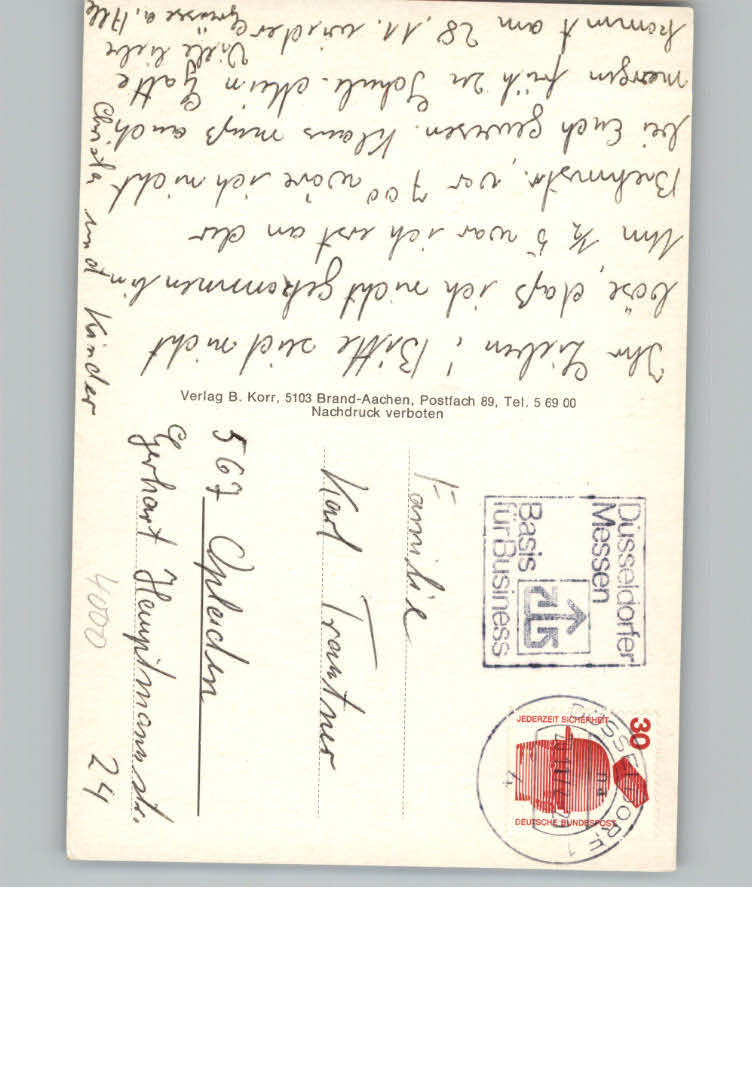 Ihr Lieben! Bitte seid nicht
böse, daß ich nicht gekommen bin,
Um ½ 5 war ich erst an der
Brehmstr., vor 7 00 wäre ich nicht
bei Euch gewesen. Klaus muß auch
morgen früh zu Schule. Mein Gatte
kommt am 28.11. wieder
Viele liebe
Grüsse a. Alle
Christa und Kinder
Verlag B. Korr, 5103 Brand-Aachen, Postfach 89, Tel. 5 69 00
Nachdruck verboten
Düsseldorfer
Messen
Basis
für Business
30
JEDERZEIT SICHERHEIT
DEUTSCHE BUNDESPOST
DÜSSELDORF 1
Familie
Karl Trautner
567 Opladen
Gerhart Hauptmannstr.
24
4000